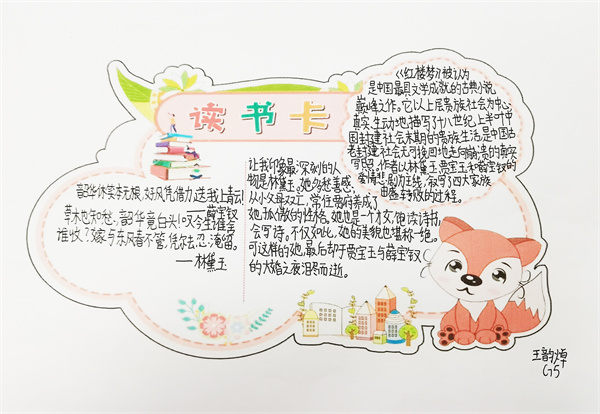 读书卡
《红楼梦》被认为
是中国最具文学成就的古典小说
巅峰之作。它以上层贵族社会为中心,
真实生动地描写了十八世纪上半叶中
国封建社会末期的贵族生活,是中国古
老封建社会无可挽回地走向崩溃的真实
写照。作者以林黛玉、贾宝玉和薛宝钗的
爱情悲剧为主线,叙写了四大家族
由盛转败的过程。
韶华休笑本无根,好风凭借力,送我上青云!
——薛宝钗
草木也知愁,韶华竟白头!叹今生谁舍
谁收?嫁与东风春不管,凭尔去,忍淹留。
——林黛玉
让我印象最深刻的人
物是林黛玉,她多愁善感,
从小父母双亡,常住贾府养成了
她孤傲的性格。她也是一个才女,饱读诗书,
会写诗。不仅如此,她的美貌也堪称一绝。
可这样的她,最后却于贾宝玉与薛宝钗
的大婚之夜泪尽而逝。
王韵
G5